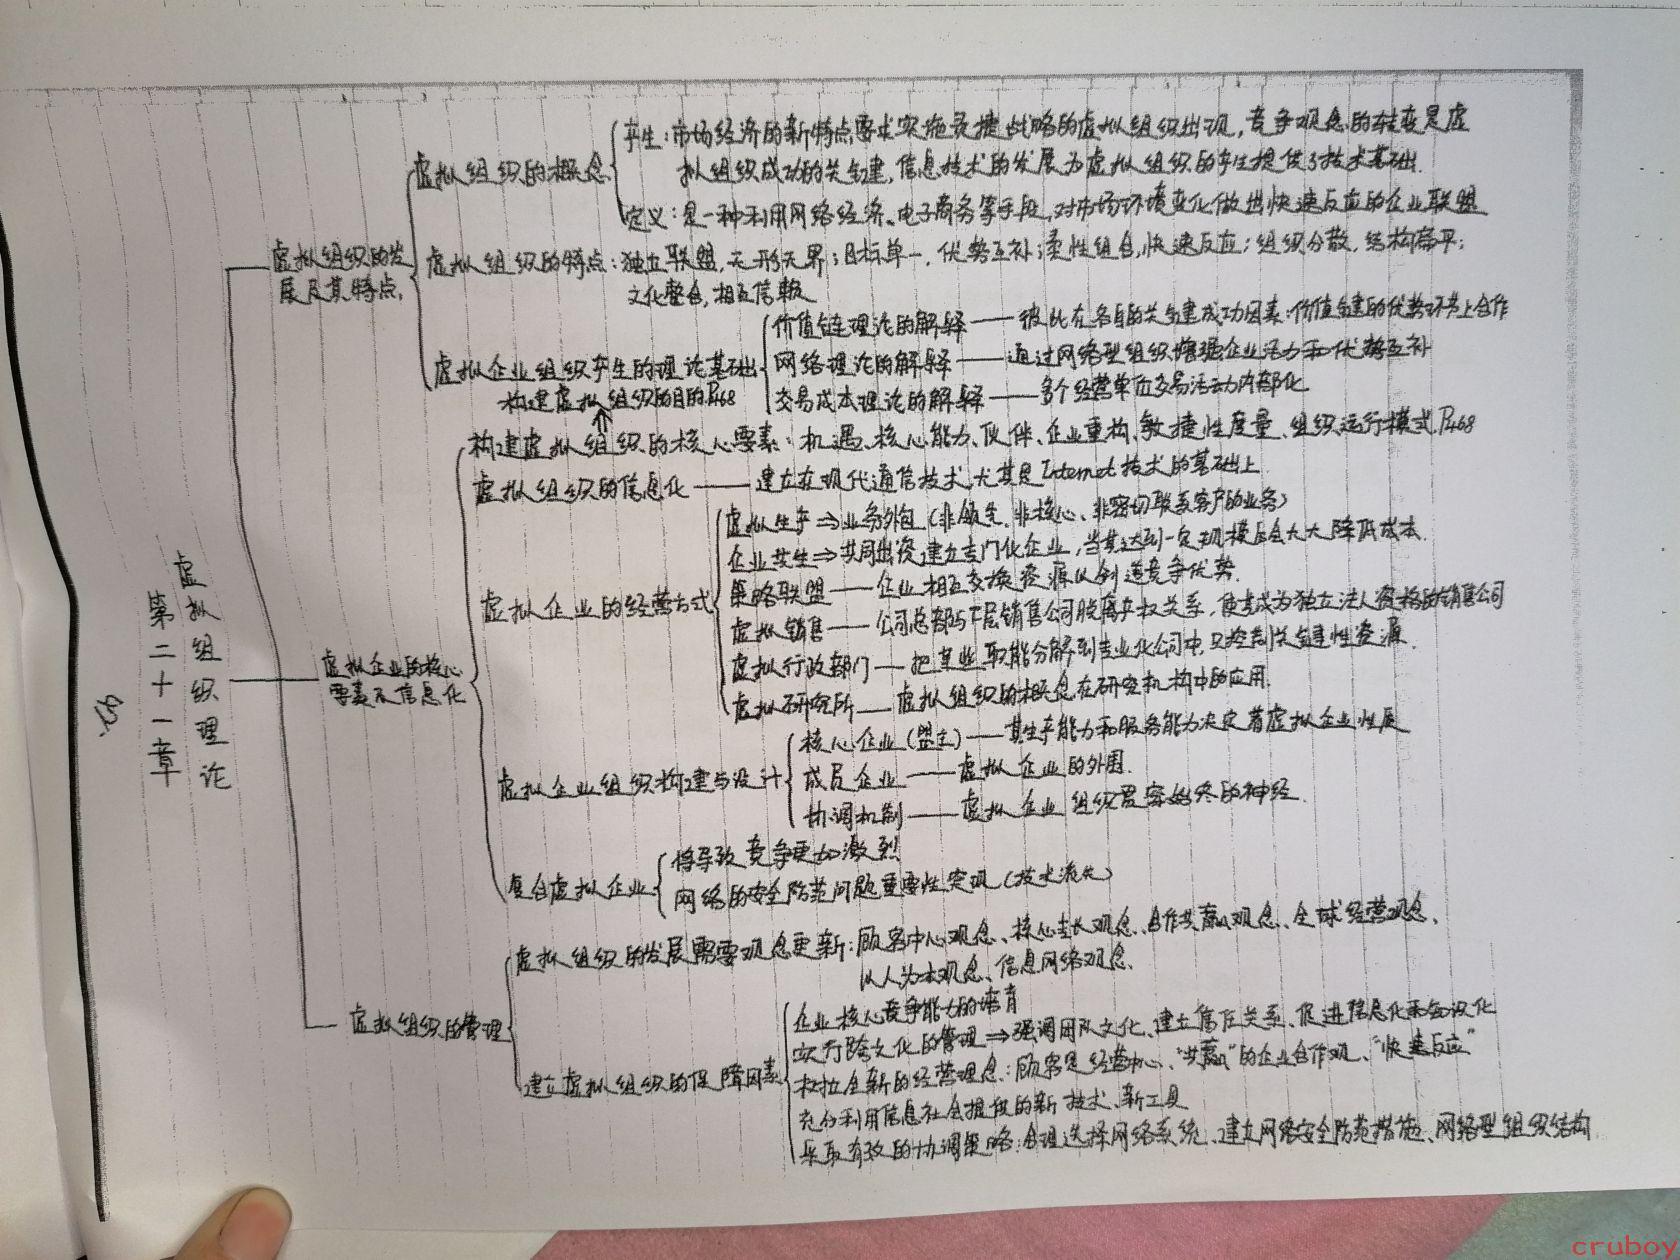 第二十一章
虚拟组织理论
虚拟组织的发
展及其特点
虚拟组织的概念
产生：市场经济的新特点要求实施灵捷战略的虚拟组织出现，竞争观念的转变是虚
拟组织成功的关键，信息技术的发展为虚拟组织的产生提供了技术基础.
定义：是一种利用网络经济、电子商务等手段，对市场环境变化做出快速反应的企业联盟
虚拟组织的特点：独立联盟，无形无界；目标单一，优势互补；柔性组合，快速反应；组织分散，结构扁平；
文化整合，相互信赖
虚拟企业组织产生的理论基础
价值链理论的解释——彼此在各自的关键成功因素：价值链的优势环节上合作
网络理论的解释——通过网络型组织增强企业活力和优势互补
交易成本理论的解释——多个经营单位交易活动内部化
构建虚拟组织的目的P468
虚拟企业的核心
要素及信息化
构建虚拟组织的核心要素：机遇、核心能力、伙伴、企业重构、敏捷性度量、组织运行模式P468
虚拟组织的信息化——建立在现代通信技术尤其是Internet技术的基础上
虚拟企业的经营方式
虚拟生产⇒业务外包（非领先、非核心、非密切联系客户的业务）
企业共生⇒共同出资建立专门化企业，当其达到一定规模后会大大降低成本.
策略联盟——企业相互交换资源以创造竞争优势.
虚拟销售——公司总部与下层销售公司脱离产权关系，使其成为独立法人资格的销售公司
虚拟行政部门——把某些职能分解到专业化公司中，只控制关键性资源.
虚拟研究所——虚拟组织的概念在研究机构中的应用.
虚拟企业组织构建与设计
核心企业（盟主）——其生产能力和服务能力决定着虚拟企业性质
成员企业——虚拟企业的外围.
协调机制——虚拟企业组织贯穿始终的神经.
复合虚拟企业
将导致竞争更加激烈
网络的安全防范问题重要性突现（技术流失）
虚拟组织的管理
虚拟组织的发展需要观念更新：顾客中心观念、核心专长观念、合作共赢观念、全球经营观念、
以人为本观念、信息网络观念.
建立虚拟组织的保障因素
企业核心竞争能力的培育
实行跨文化的管理⇒强调团队文化、建立信任关系、促进信息化和知识化
树立全新的经营理念：顾客是经营中心、“共赢”的企业合作观、“快速反应”
充分利用信息社会提供的新技术、新工具
采取有效的协调策略：合理选择网络系统、建立网络安全防范措施、网络型组织结构
cruboy